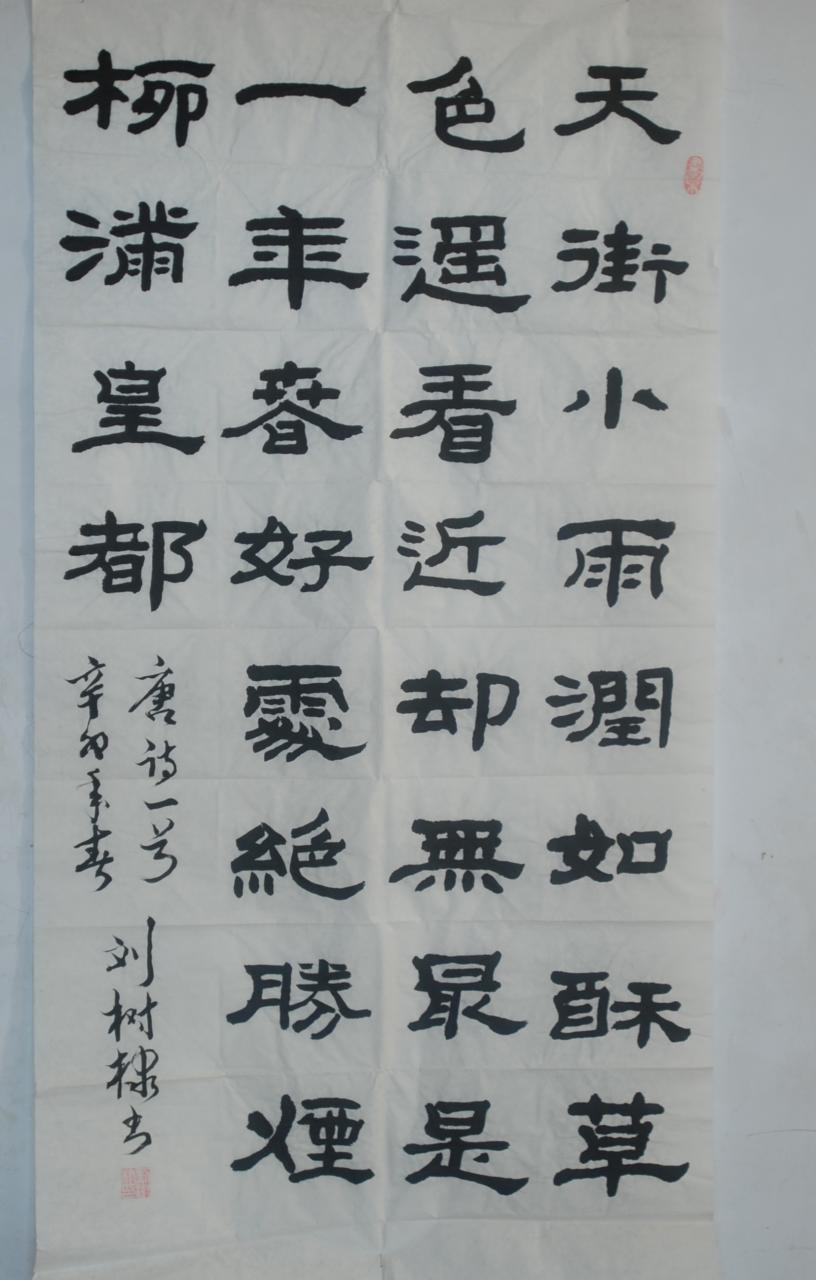 天街小雨潤如酥草
色遥看近却無最是
一年春好處絕勝煙
柳滿皇都
唐诗一首
辛卯年春
刘树棣书